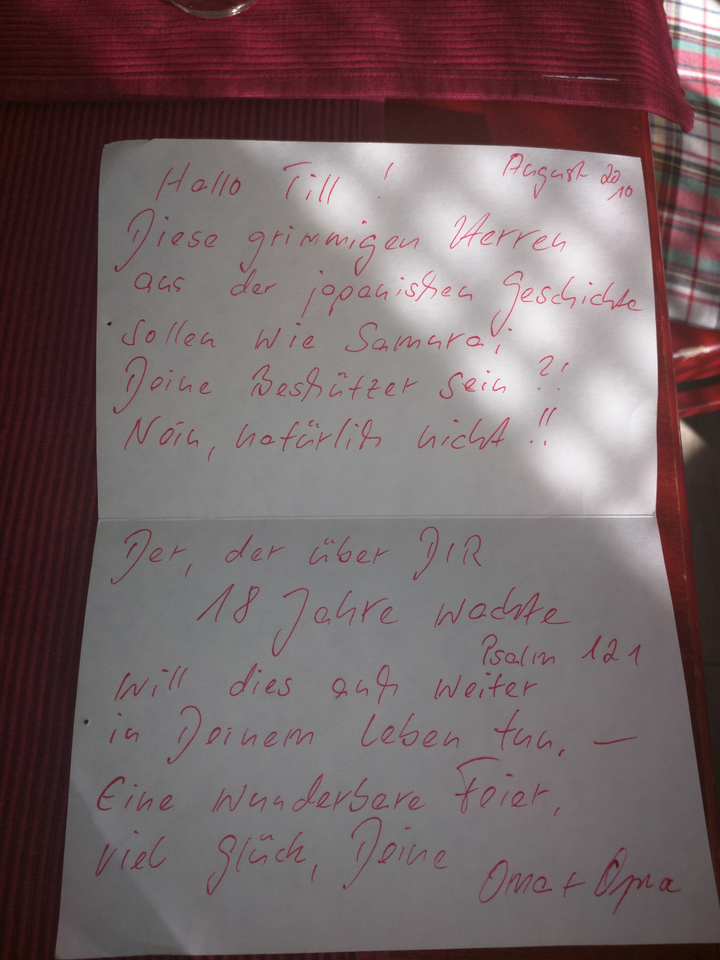 Hallo Till !
August 2010
Diese grimmigen Herren
aus der japanischen Geschichte
sollen wie Samurai
Deine Beschützer sein ?!
Nein, natürlich nicht !!
Der, der über DIR
18 Jahre wachte
Psalm 121
will dies auch weiter
in Deinem Leben tun, —
Eine wunderbare Feier,
viel Glück, Deine
Oma + Opa